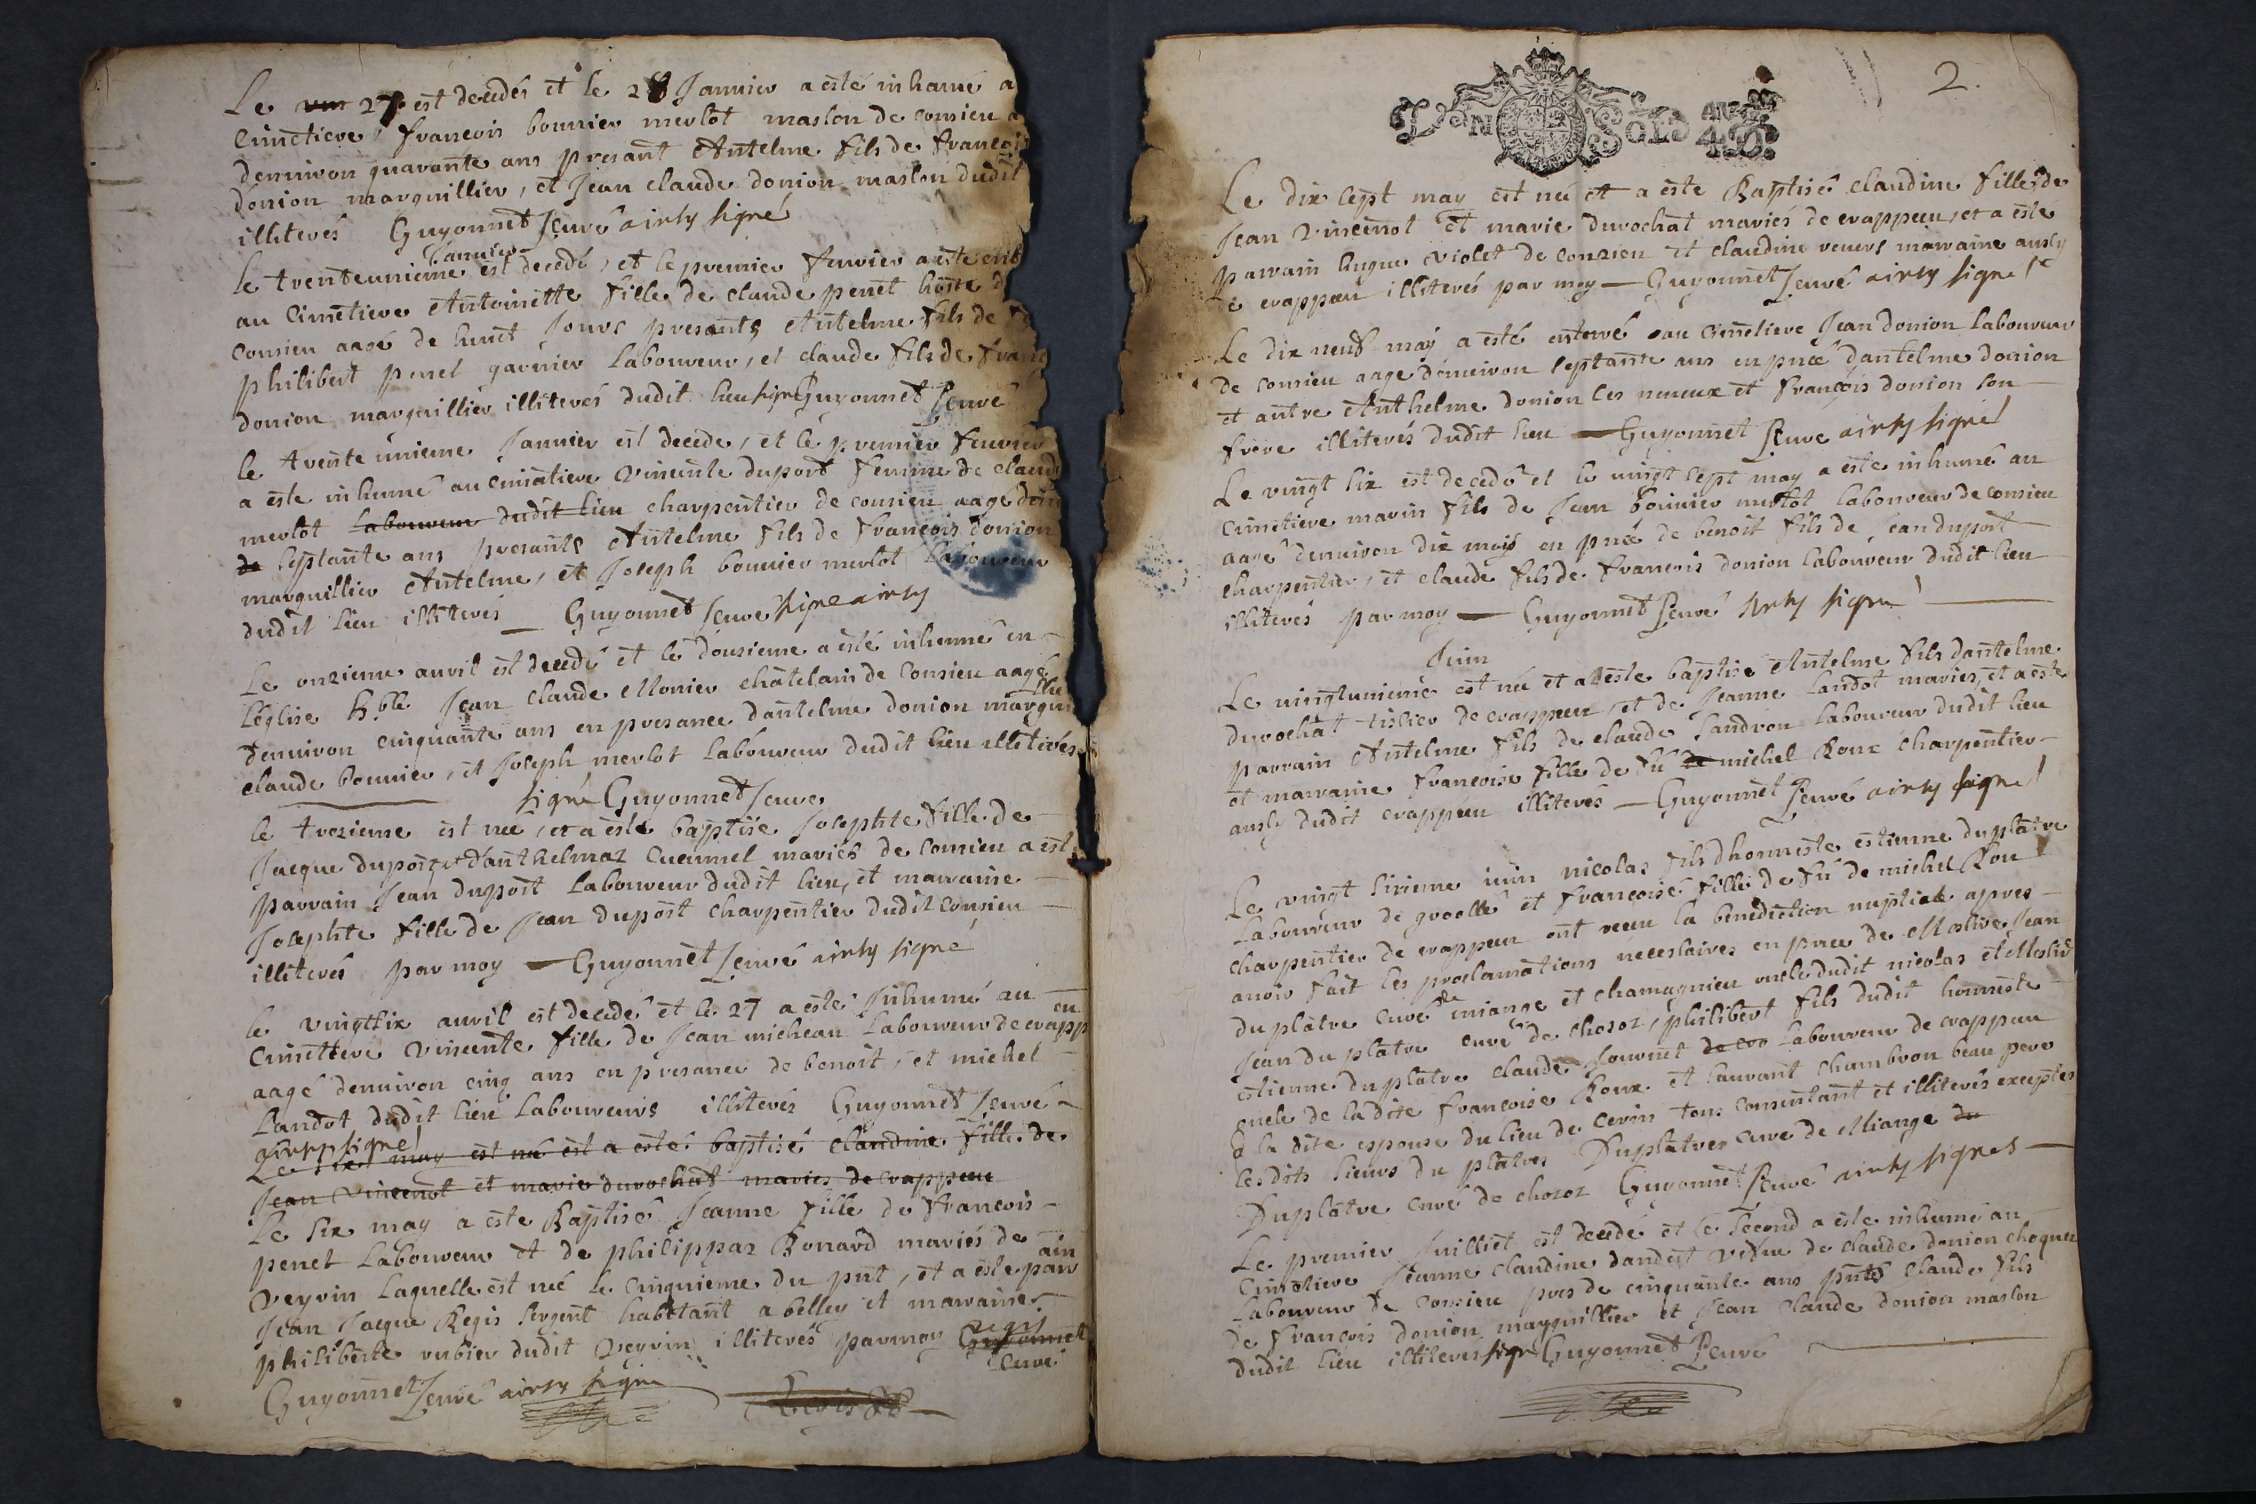 Le 27 est decedés et le 28 Jannier a esté inhamé a
Cimetiere françois bonnier merlot maslon de consieu a
denuiron quarante ans presant Antelme fils de françois
donion marguillier, et Jean claude donion maslon dudit
illiterés Guyonnet Curé ainsy signé
Janvier
le trenteunieme est decedé, et le premier feurier a esté ent
au Cimetiere Antoinette fille de claude penet hoste d
consieu aagé de huict Jours presants Antelme fils de
philibert penet garnier Laboureur, et claude fils de franç
donion marguillier illiterés dudit lieu signé Guyonnet Curé
le trente unieme Jannier est decede, et le premier feurier
a este inhumé au Cimetiere Vincente duport femme de claude
merlot Laboureur dudit lieu charpentier de consieu aage denu
de septante ans presants Antelme fils de françois donion
marguillier Antelme, et Joseph bonnier merlot Laboureur
dudit lieu illiterés — Guyonnet Curé signe ainsy
Le onzieme auril est decedé et le dousieme a esté inhumé en
Léglise h.ble Jean claude Monier châtelain de Consieu aagé
denuiron cinquante ans en presance dantelme donion marguillier
claude bonnier, et Joseph merlot Laboureur dudit lieu illiterés
signé Guyonnet Curé
le trezieme est neé, et a este baptise Josephte fille de
Jacque duport et danthelmaz Cuennel mariés de Consieu a est
parrain Jean duport Laboureur dudit lieu, et marraine
Josephte fille de Jean duport charpentier dudit Consieu
illiterés par moy — Guyonnet Curé ainsy signé
le vingtsix auril est decedé et le 27 a esté Inhumé au
Cimettiere Vincente fille de Jean micheau Laboureur de crappeu
aagé denuiron cinq ans en presance de benoit, et michel
Landot dudit lieu Laboureurs illiterés Guyonnet Curé
ainsy signé
Le six may est né et a esté baptisé Claudine fille de
Jean Vincenot et marie durochat maries de crappeu
Le six may a este Baptisé Jeanne fille de françois
penet Laboureur et de philippaz Bonard mariés de
Veyrin Laquelle est neé le cinquieme du pnt, et a este parrain
Jean Jacque Regis sergent habitant a belley et marraine
philiberte rubier dudit Veyrin illiterés par moy Guyonnet regis
Curé
Guyonnet Curé ainsy signe
2.
UN SOLS
Le dix sept may est né et a este Baptisé claudine fille de
Jean Vincenot et marie durochat mariés de crappeu, et a este
parrain hugue violet de conzieu et claudine reuers marraine ausy
de crappeu illiterés par moy — Guyonnet Curé ainsy signé
Le dix neuf may a esté enterré au Cimetiere Jean donion Laboureur
de consieu aage denuiron septante ans en pnce dantelme donion
et autre Anthelme donion ses neueux et françois donion son
frere illiterés dudit lieu — Guyonnet Curé ainsy signé
Le vingt six est decedé et le vingt sept may a este inhumé au
Cimetiere marin fils de Jean bonnier merlot laboureur de consieu
aagé denuiron dix mois en pnce de benoit fils de Jean duport
charpentier, et claude fils de françois donion laboureur dudit lieu
illiterés par moy — Guyonnet Curé ainsy signé
Juin
Le vingtunieme est né et a este baptisé Antelme fils dantelme
durochat tislier de crappeu, et de Jeanne Landot mariés, et a este
parrain Antelme fils de claude Landron laboureur dudit lieu
et marraine françoise fille de fû michel Roux charpentier
ausy dudit crappeu illiterés — Guyonnet Curé ainsy signé
Le vingt sixieme iuin nicolas fils dhonneste estienne duplâtre
Laboureur de groslle et françoise fille de fû de michel Rou
charpentier de crappeu ont receu la benediction nuptiale apres
auoir fait les proclamations necessaires en pnce de Mestire Jean
du plâtre curé de miange et chamagnieu oncle dudit nicolas et Messire
Jean du plâtre curé de chozoz, philibert fils dudit honneste
estienne duplâtre claude Jouvnet Laboureur de crappeu
oncle de la dite françoise Roux et laurant chambron beau pere
a la dite espouse du lieu de Cevin tous consentant et illiterés exceptés
lesdits sieurs du platres Duplâtres curé de Miange
Duplâtre curé de chozoz Guyonnet Curé ainsy signés —
Le premier Juilliet est decedé et le second a este inhumé au
Cimetiere Jeanne claudine dandert Vefue de claude donion choquet
Laboureur de Consieu pres de cinquante ans pnts claude fils
de françois donion marguillier et Jean Claude donion maslon
dudit lieu illiterés signé Guyonnet Curé